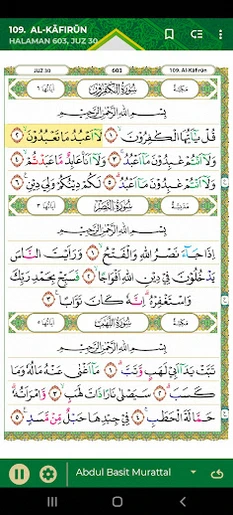 109. AL-KĀFIRŪN
HALAMAN 603, JUZ 30
JUZ 30 603 109. Al-Kāfirūn
مَكِّيَّة سُورَةُ الْكٰفِرُوْنَ اٰيَاتُهَا ٦
بِسْمِ اللّٰهِ الرَّحْمٰنِ الرَّحِيْمِ
قُلْ يٰٓاَيُّهَا الْكٰفِرُوْنَ ۝١ لَآ اَعْبُدُ مَا تَعْبُدُوْنَ ۝٢
وَلَآ اَنْتُمْ عٰبِدُوْنَ مَآ اَعْبُدُ ۝٣ وَلَآ اَنَا۠ عَابِدٌ مَّا عَبَدْتُّمْ ۝٤
وَلَآ اَنْتُمْ عٰبِدُوْنَ مَآ اَعْبُدُ ۝٥ لَكُمْ دِيْنُكُمْ وَلِيَ دِيْنِ ۝٦
مَدَنِيَّة سُورَةُ النَّصْرِ اٰيَاتُهَا ٣
بِسْمِ اللّٰهِ الرَّحْمٰنِ الرَّحِيْمِ
اِذَا جَاۤءَ نَصْرُ اللّٰهِ وَالْفَتْحُ ۝١ وَرَاَيْتَ النَّاسَ
يَدْخُلُوْنَ فِيْ دِيْنِ اللّٰهِ اَفْوَاجًا ۝٢ فَسَبِّحْ بِحَمْدِ رَبِّكَ
وَاسْتَغْفِرْهُ اِنَّهٗ كَانَ تَوَّابًا ۝٣
مَكِّيَّة سُورَةُ اللَّهَبِ اٰيَاتُهَا ٥
بِسْمِ اللّٰهِ الرَّحْمٰنِ الرَّحِيْمِ
تَبَّتْ يَدَآ اَبِيْ لَهَبٍ وَّتَبَّ ۝١ مَآ اَغْنٰى عَنْهُ مَالُهٗ وَمَا
كَسَبَ ۝٢ سَيَصْلٰى نَارًا ذَاتَ لَهَبٍ ۝٣ وَّامْرَاَتُهٗ
حَمَّالَةَ الْحَطَبِ ۝٤ فِيْ جِيْدِهَا حَبْلٌ مِّنْ مَّسَدٍ ۝٥
Abdul Basit Murattal